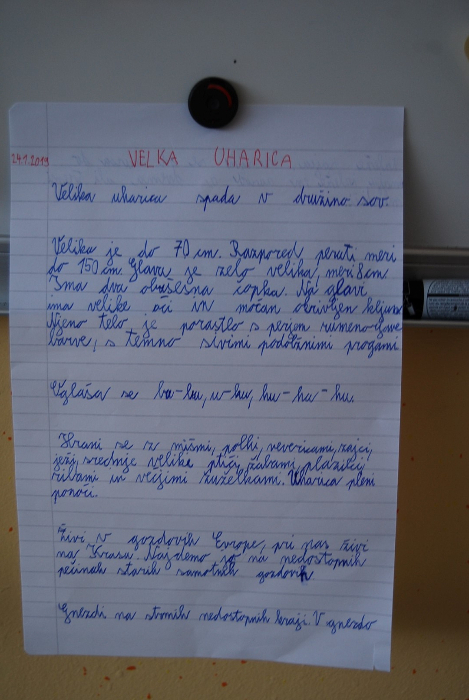 24.1.2019
VELKA UHARICA
Velika uharica spada v družino sov.
Velika je do 70 cm. Razpored peruti meri
do 150 cm. Glava je zelo velika, meri 8 cm
Ima dva obušesna čopka. Na glavi
ima velike oči in močan ukrivljen kljun.
Njeno telo je poraslo s perjem rumeno-sive
barve, s temno sivimi podolžnimi progami.
Oglaša se bu-bu, u-hu, hu-hu-hu.
Hrani se z mišmi, polhi, vevericami, zajci,
ježi, srednje velike ptiči, žabami, plazilci
ribami in večjimi žuželkam. Uharica pleni
ponoči.
Živi v gozdovih Evrope, pri nas živi
na Krasu. Najdemo jo na nedostopnih
pečinah starih samotnih gozdovih
Gnezdi na strmih nedostopnih kraji. V gnezdo